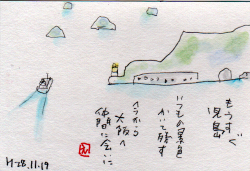 もうすぐ
児島
いつもの景色
かいて残す
今から
大阪へ
仲間に会いに
H28.11.19